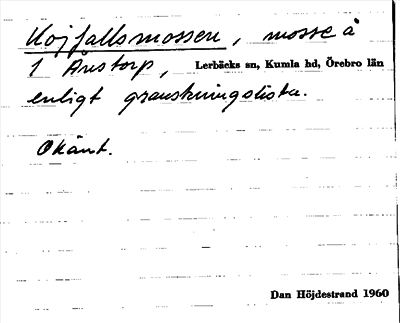 Höjfallsmossen, mosse å
1 Åustorp, Lerbäcks sn, Kumla hd, Örebro län
enligt granskningslista.
Okänt.
Dan Höjdestrand 1960